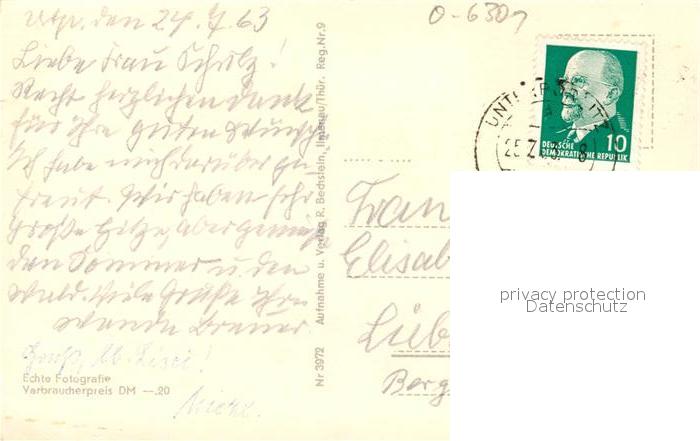 den 24. 7. 63
Liebe Frau Scholz!
Recht herzlichen Dank
für Ihre guten Wünsche
Ich habe mich darüber ge-
freut. Wir haben sehr
große Hitze, aber
den Sommer u den
Wald. Viele Grüße Ihre
Wanda
Gruß,
Echte Fotografie
Verbraucherpreis DM —.20
Nr 3972 Aufnahme u. Verlag R. Bechstein, Ilmenau/Thür. Reg.Nr.9
0-6309
10
DEUTSCHE
DEMOKRATISCHE REPUBLIK
Elisab
Lüb
Berg
privacy protection
Datenschutz